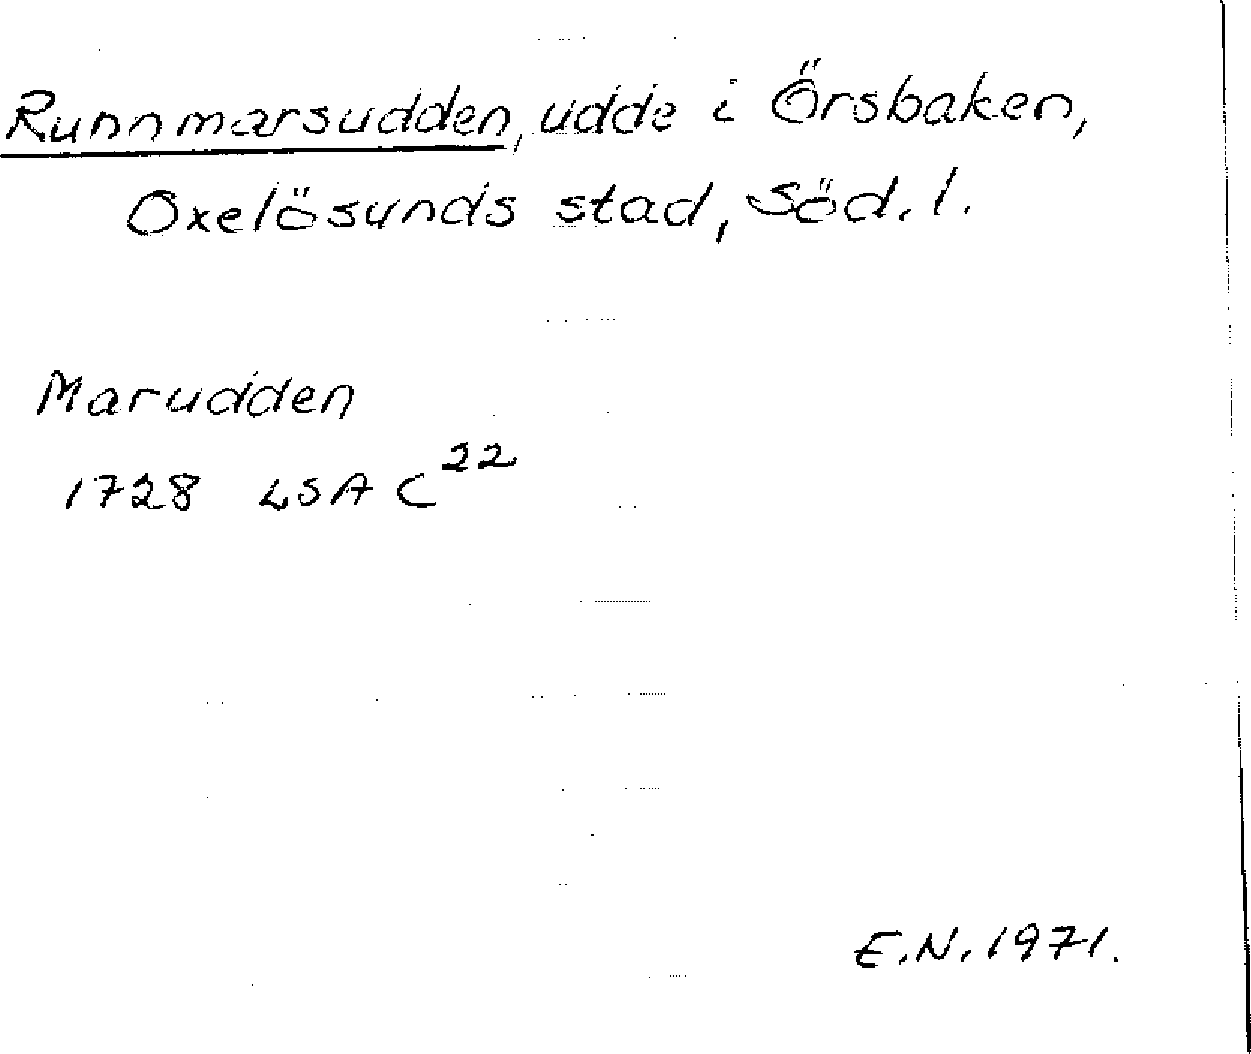 Runnmarsudden, udde i Örsbaken,
Oxelösunds stad, Söd. l.
Marudden
1728 LSA C²²
E.N. 1971.